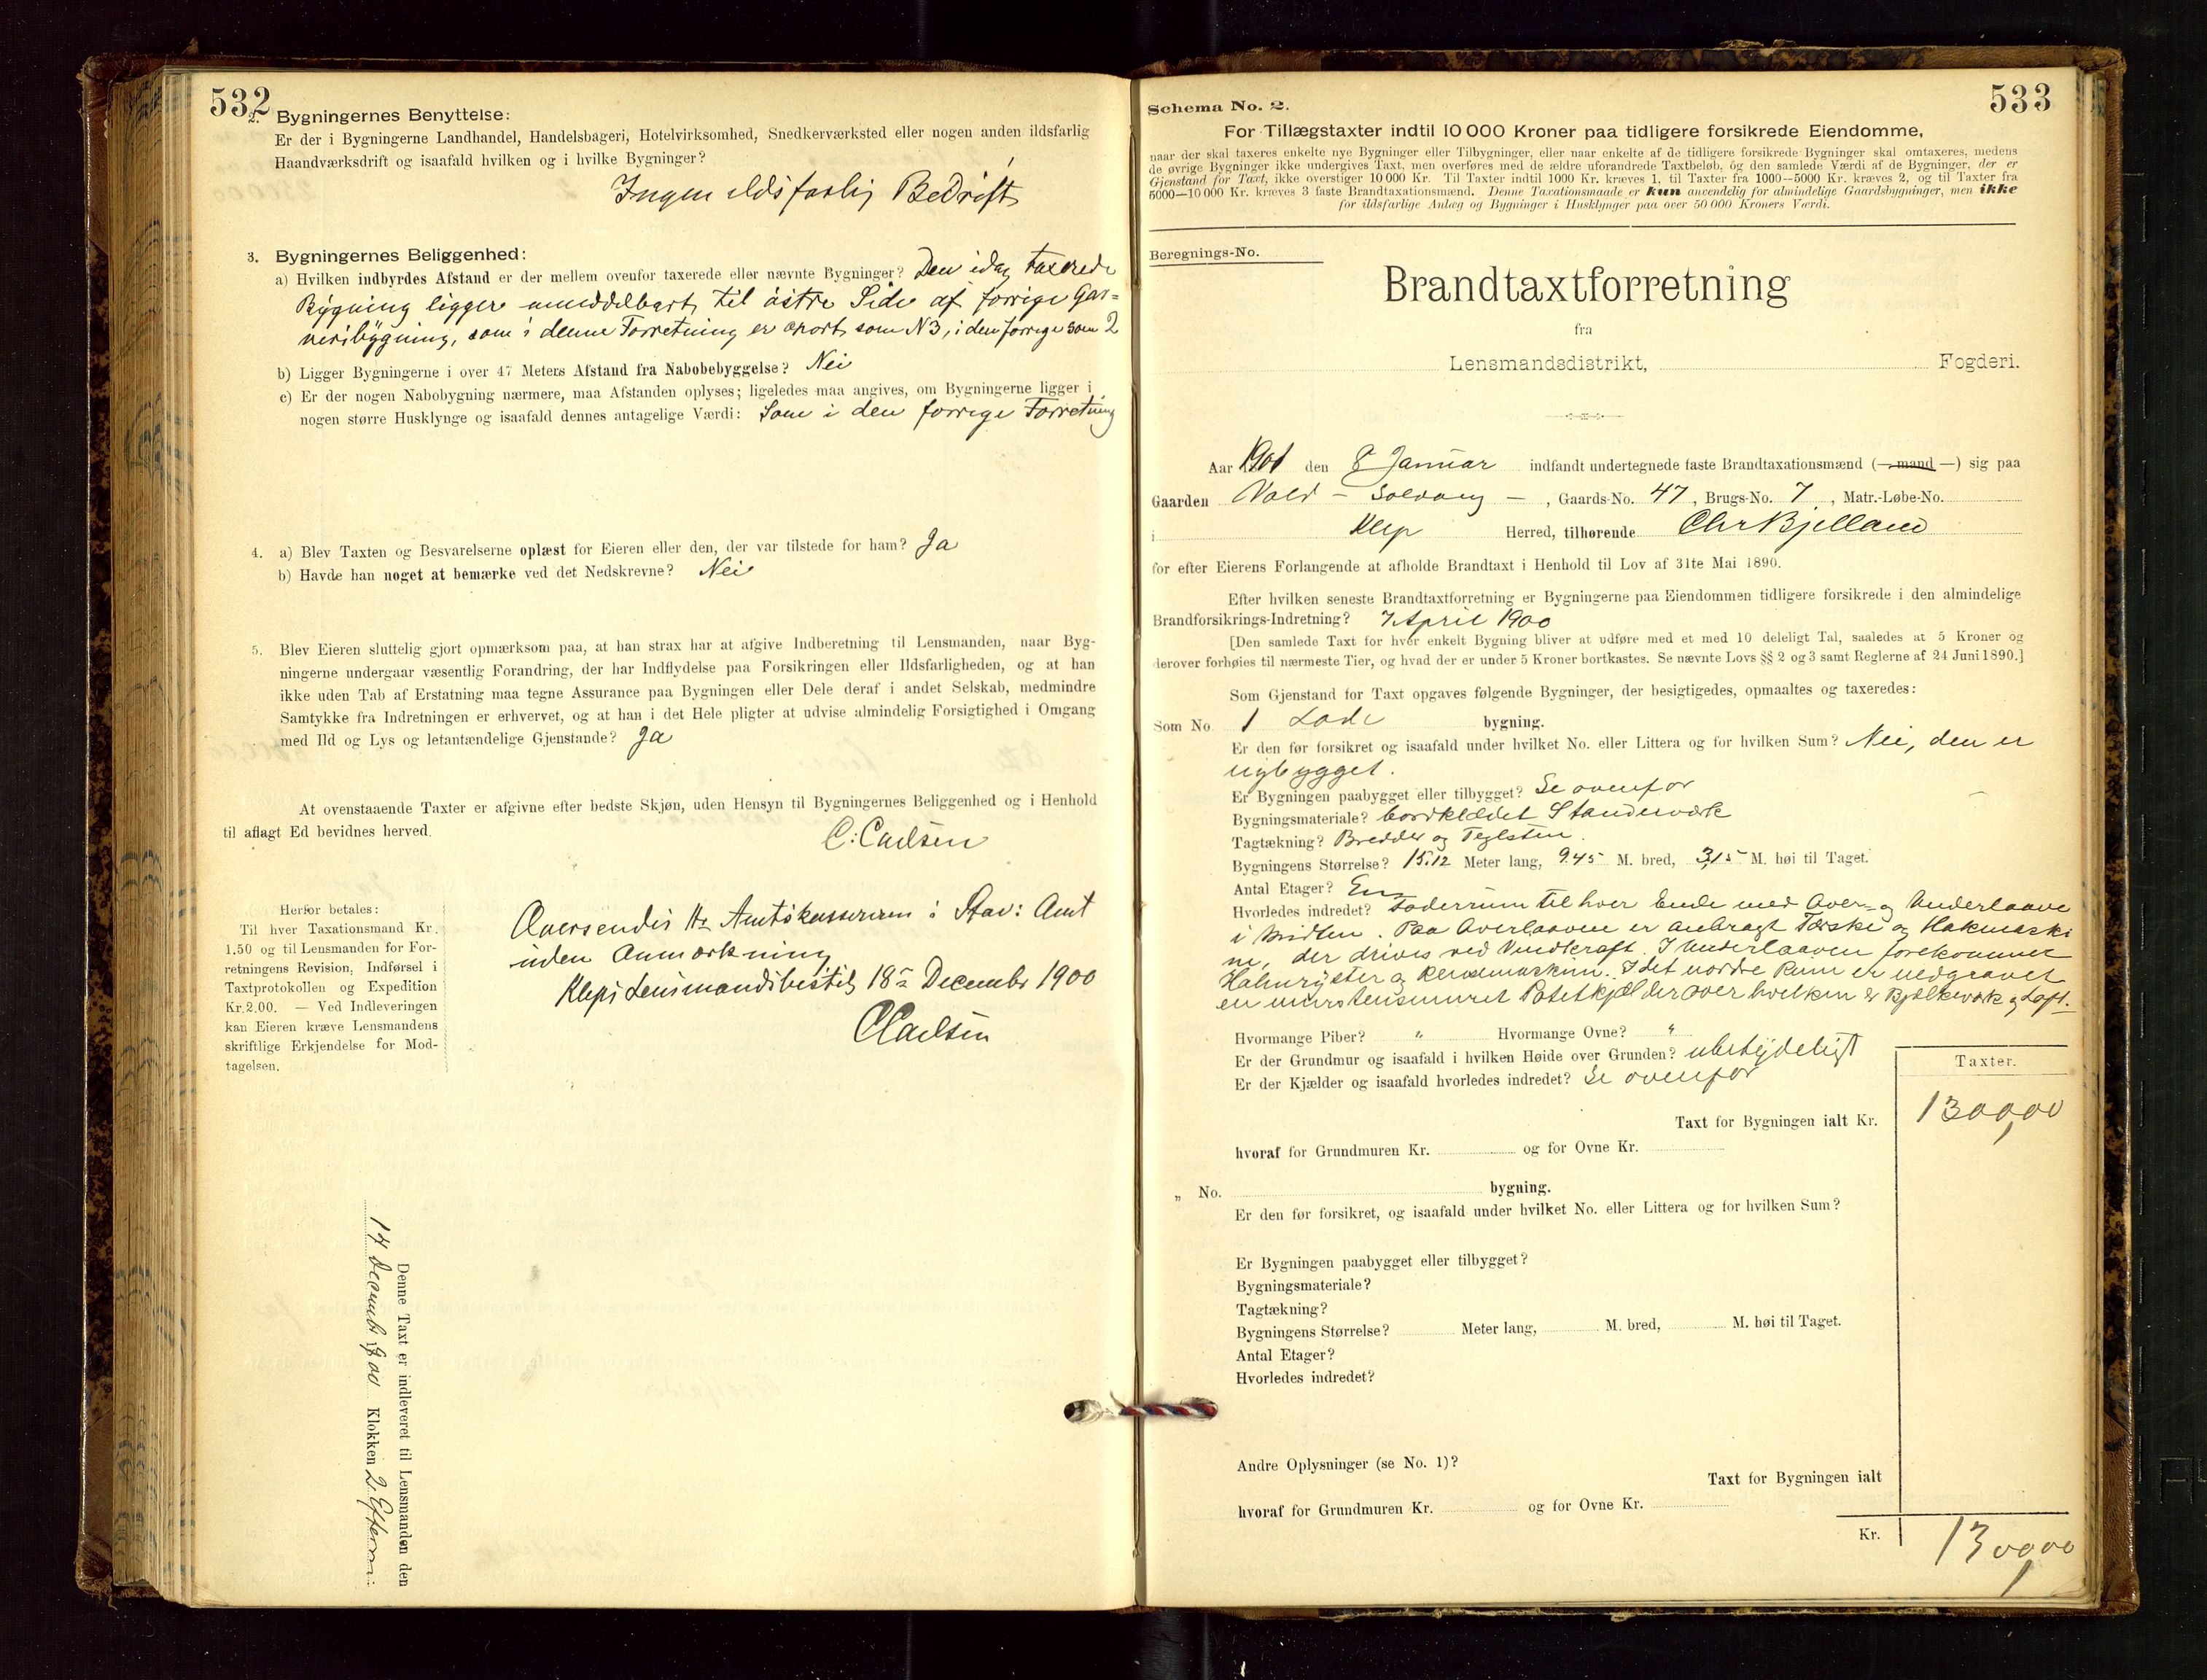 532
2. Bygningernes Benyttelse:
Er der i Bygningerne Landhandel, Handelsbageri, Hotelvirksomhed, Snedkerværksted eller nogen anden ildsfarlig
Haandværksdrift og isaafald hvilken og i hvilke Bygninger?
Ingen ildsfarlig Bedrift
3. Bygningernes Beliggenhed:
a) Hvilken indbyrdes Afstand er der mellem ovenfor taxerede eller nævnte Bygninger? Den idag taxerede
Bygning ligger umiddelbart til østre Side af forrige Gar-
veribygning, som i denne Forretning er anført som N3, i den forrige som 2
b) Ligger Bygningerne i over 47 Meters Afstand fra Nabobebyggelse? Nei
c) Er der nogen Nabobygning nærmere, maa Afstanden oplyses; ligeledes maa angives, om Bygningerne ligger i
nogen større Husklynge og isaafald dennes antagelige Værdi: Som i den forrige Forretning
4. a) Blev Taxten og Besvarelserne oplæst for Eieren eller den, der var tilstede for ham? Ja
b) Havde han noget at bemærke ved det Nedskrevne? Nei
5. Blev Eieren sluttelig gjort opmærksom paa, at han strax har at afgive Indberetning til Lensmanden, naar Byg-
ningerne undergaar væsentlig Forandring, der har Indflydelse paa Forsikringen eller Ildsfarligheden, og at han
ikke uden Tab af Erstatning maa tegne Assurance paa Bygningen eller Dele deraf i andet Selskab, medmindre
Samtykke fra Indretningen er erhvervet, og at han i det Hele pligter at udvise almindelig Forsigtighed i Omgang
med Ild og Lys og letantændelige Gjenstande? Ja
At ovenstaaende Taxter er afgivne efter bedste Skjøn, uden Hensyn til Bygningernes Beliggenhed og i Henhold
til aflagt Ed bevidnes herved.
C: Carlsen
Herfor betales:
Til hver Taxationsmand Kr.
1.50 og til Lensmanden for For-
retningens Revision, Indførsel i
Taxtprotokollen og Expedition
Kr. 2.00. — Ved Indleveringen
kan Eieren kræve Lensmandens
skriftlige Erkjendelse for Mod-
tagelsen.
Oversendes Hr Amtskassereren i Stav: Amt
uden Anmærkning
Kleps Lensmandsbestil 18 December 1900
CCarlsen
Denne Taxt er indleveret til Lensmanden den
14 Decemb 1900 Klokken 2 Efterm:
533
Schema No. 2.
For Tillægstaxter indtil 10 000 Kroner paa tidligere forsikrede Eiendomme,
naar der skal taxeres enkelte nye Bygninger eller Tilbygninger, eller naar enkelte af de tidligere forsikrede Bygninger skal omtaxeres, medens
de øvrige Bygninger ikke undergives Taxt, men overføres med de ældre uforandrede Taxtbeløb, og den samlede Værdi af de Bygninger, der er
Gjenstand for Taxt, ikke overstiger 10 000 Kr. Til Taxter indtil 1000 Kr. kræves 1, til Taxter fra 1000—5000 Kr. kræves 2, og til Taxter fra
5000—10 000 Kr. kræves 3 faste Brandtaxationsmænd. Denne Taxationsmaade er kun anvendelig for almindelige Gaardsbygninger, men ikke
for ildsfarlige Anlæg og Bygninger i Husklynger paa over 50 000 Kroners Værdi.
Beregnings-No.
Brandtaxtforretning
fra
Lensmandsdistrikt, Fogderi.
Aar 1901 den 8 Januar indfandt undertegnede faste Brandtaxationsmænd (— mand —) sig paa
Gaarden Vold - Solvang -, Gaards-No. 47, Brugs-No. 7, Matr.-Løbe-No.
i Klep Herred, tilhørende Chr Bjelland
for efter Eierens Forlangende at afholde Brandtaxt i Henhold til Lov af 31te Mai 1890.
Efter hvilken seneste Brandtaxtforretning er Bygningerne paa Eiendommen tidligere forsikrede i den almindelige
Brandforsikrings-Indretning? 7 April 1900
[Den samlede Taxt for hver enkelt Bygning bliver at udføre med et med 10 deleligt Tal, saaledes at 5 Kroner og
derover forhøies til nærmeste Tier, og hvad der er under 5 Kroner bortkastes. Se nævnte Lovs §§ 2 og 3 samt Reglerne af 24 Juni 1890.]
Som Gjenstand for Taxt opgaves følgende Bygninger, der besigtigedes, opmaaltes og taxeredes:
Som No 1 Lade bygning.
Er den før forsikret og isaafald under hvilket No. eller Littera og for hvilken Sum? Nei, den er
nybygget.
Er Bygningen paabygget eller tilbygget? Se ovenfor
Bygningsmateriale? bordklædet Standerværk
Tagtækning? Bredder og Teglsten.
Bygningens Størrelse? 15.12 Meter lang, 9.45 M. bred, 3,15 M. høi til Taget.
Antal Etager? En
Hvorledes indredet? Foderrum til hver Ende med Over- og Underlaave
i Midten. Paa Overlaaven er anbragt Tærske og Hakmaski
ne, der drives ved Vindkraft. I Underlaaven forekommer
Halmryster og Rensemaskin. I det nordre Rum er nedgravet
en murstensmuret Potetkjælder over hvilken er Bjelkeværk og Loft.
Hvormange Piber? " Hvormange Ovne? "
Er der Grundmur og isaafald i hvilken Høide over Grunden? ubetydeligt
Er der Kjælder og isaafald hvorledes indredet? Se ovenfor
Taxter.
Taxt for Bygningen ialt Kr. 1300,00
hvoraf for Grundmuren Kr. og for Ovne Kr.
" No. bygning.
Er den før forsikret, og isaafald under hvilket No. eller Littera og for hvilken Sum?
Er Bygningen paabygget eller tilbygget?
Bygningsmateriale?
Tagtækning?
Bygningens Størrelse? Meter lang, M. bred, M. høi til Taget.
Antal Etager?
Hvorledes indredet?
Andre Oplysninger (se No. 1)?
Taxt for Bygningen ialt
hvoraf for Grundmuren Kr. og for Ovne Kr.
Kr. 1300,00